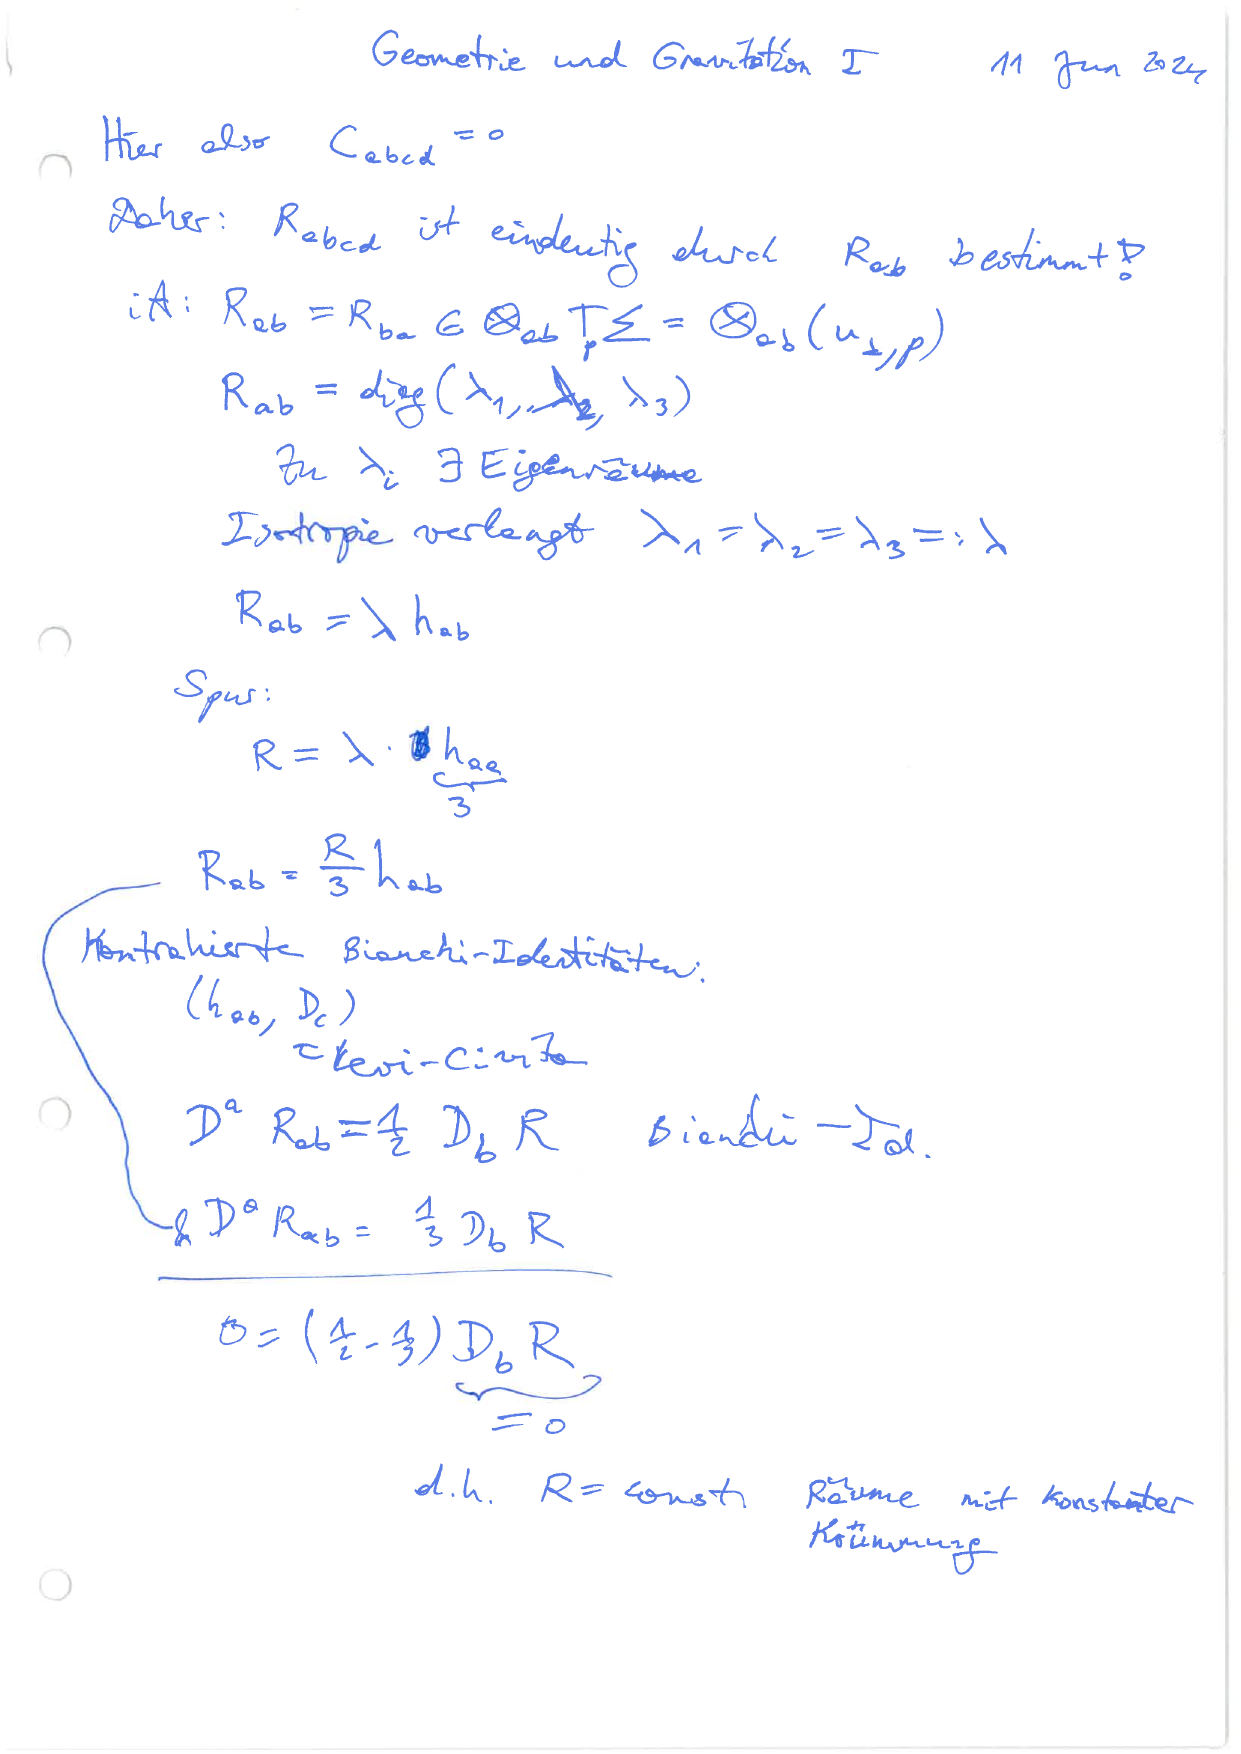 Geometrie und Gravitation I 11 Jun 2024
Hier also C_abcd = 0
Daher: R_abcd ist eindeutig durch R_ab bestimmt!
iA: R_ab = R_ba ∈ ⊗_ab T_p Σ = ⊗_ab (u_⊥,p)
R_ab = diag(λ_1, λ_2, λ_3)
Zu λ_i ∃ Eigenräume
Isotropie verlangt λ_1 = λ_2 = λ_3 =: λ
R_ab = λ h_ab
Spur:
R = λ · h_aa
3
R_ab = R/3 h_ab
Kontrahierte Bianchi-Identitäten:
(h_ab, D_c)
Levi-Civita
D^a R_ab = 1/2 D_b R Bianchi-Id.
& D^a R_ab = 1/3 D_b R
0 = (1/2 - 1/3) D_b R
= 0
d.h. R = const, Räume mit konstanter
Krümmung